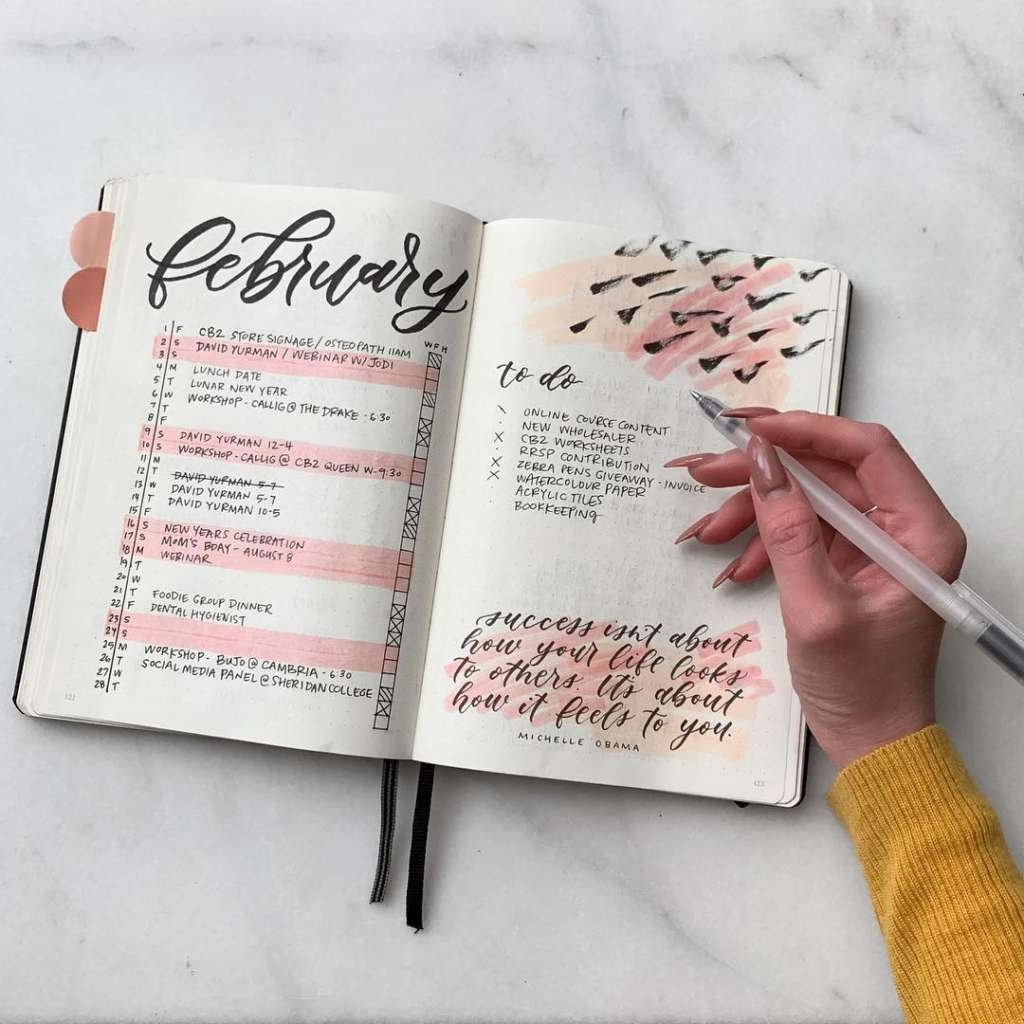 february
WFH
1 F CB2 STORE SIGNAGE / OSTEOPATH 11AM
2 S DAVID YURMAN / WEBINAR W/ JODI
3 S
4 M LUNCH DATE
5 T LUNAR NEW YEAR
6 W WORKSHOP - CALLIG @ THE DRAKE - 6:30
7 T
8 F
9 S DAVID YURMAN 12-4
10 S WORKSHOP - CALLIG @ CB2 QUEEN W - 9:30
11 M
12 T DAVID YURMAN 5-7
13 W DAVID YURMAN 5-7
14 T DAVID YURMAN 10-5
15 F
16 S NEW YEARS CELEBRATION
17 S MOM'S BDAY - AUGUST 8
18 M WEBINAR
19 T
20 W
21 T FOODIE GROUP DINNER
22 F DENTAL HYGIENIST
23 S
24 S
25 M WORKSHOP - BUJO @ CAMBRIA - 6:30
26 T SOCIAL MEDIA PANEL @ SHERIDAN COLLEGE
27 W
28 T
122
to do
\ ONLINE COURSE CONTENT
· NEW WHOLESALER
X CB2 WORKSHEETS
· RRSP CONTRIBUTION
X ZEBRA PENS GIVEAWAY - INVOICE
X WATERCOLOUR PAPER
· ACRYLIC TILES
· BOOKKEEPING
success isn't about
how your life looks
to others. It's about
how it feels to you.
MICHELLE OBAMA
123